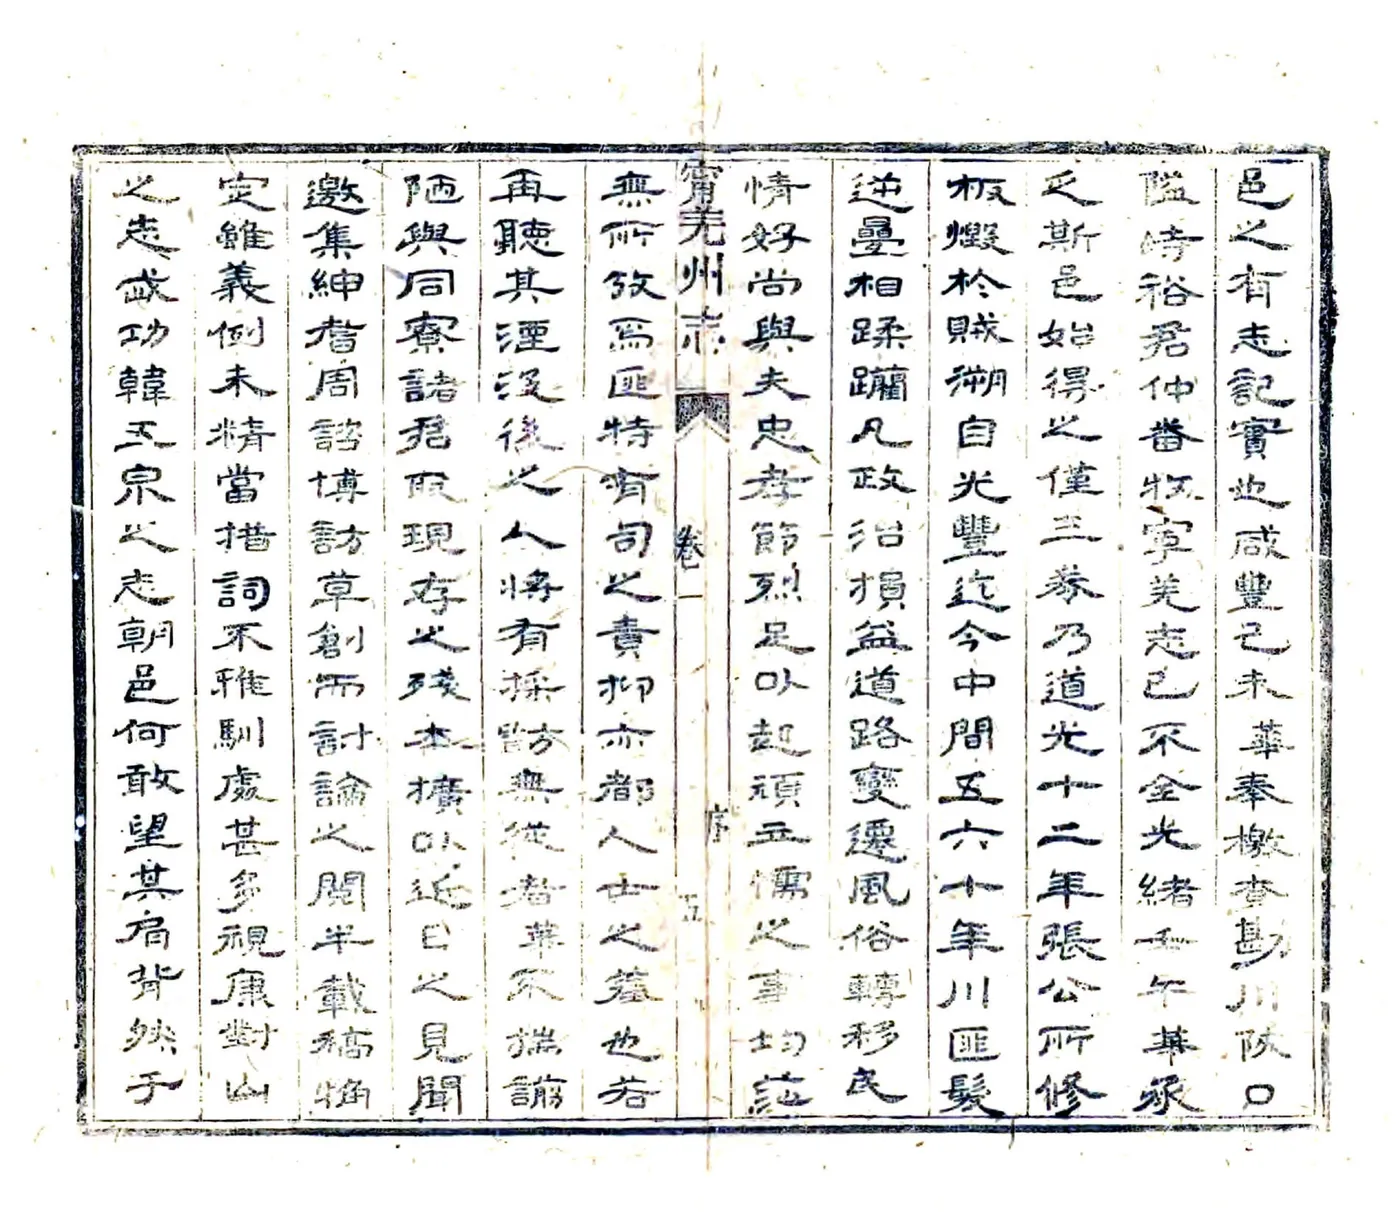 邑之有志記實也咸豐己未華奉檄查勘川陝口
隘時裕君仲番牧寧羌志已不全光緒壬午華承
乏斯邑始得之僅三募乃道光十二年張公所修
板燬於賊溯自光豐迄今中間五六十年川匪髮
逆疊相蹂躪凡政治損益道路變遷風俗轉移民
情好尚與夫忠孝節烈足以起頑立懦之事均茫
甯羌州志 卷一 序 五
無所攷焉匪特有司之責抑亦都人士之羞也若
再聽其湮沒後之人將有採訪無從者華不揣謭
陋與同寮諸君取現存之殘本擴以近日之見聞
邀集紳耆周諮博訪草創而討論之閱半載稿
定雖義例未精當措詞不雅馴處甚多視康對山
之志武功韓五泉之志朝邑何敢望其肩背然于